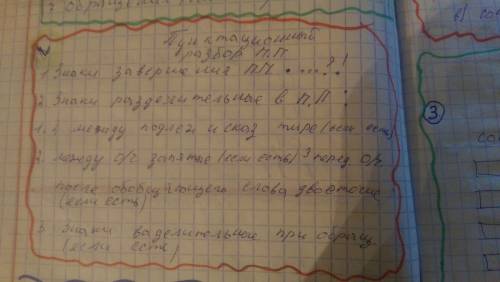 Обращения
Пунктационный
разбор П.П.
1. Знаки завершения П.П. . ... ? !
2. Знаки разделительные в П.П :
1. между подлеж и сказ тире (если есть)
2. между О/ч запятые (если есть) 3 перед О/ч
после обобщающего слова двоеточие
(если есть)
3. Знаки выделительные при обращ.
(если есть)
в)
3